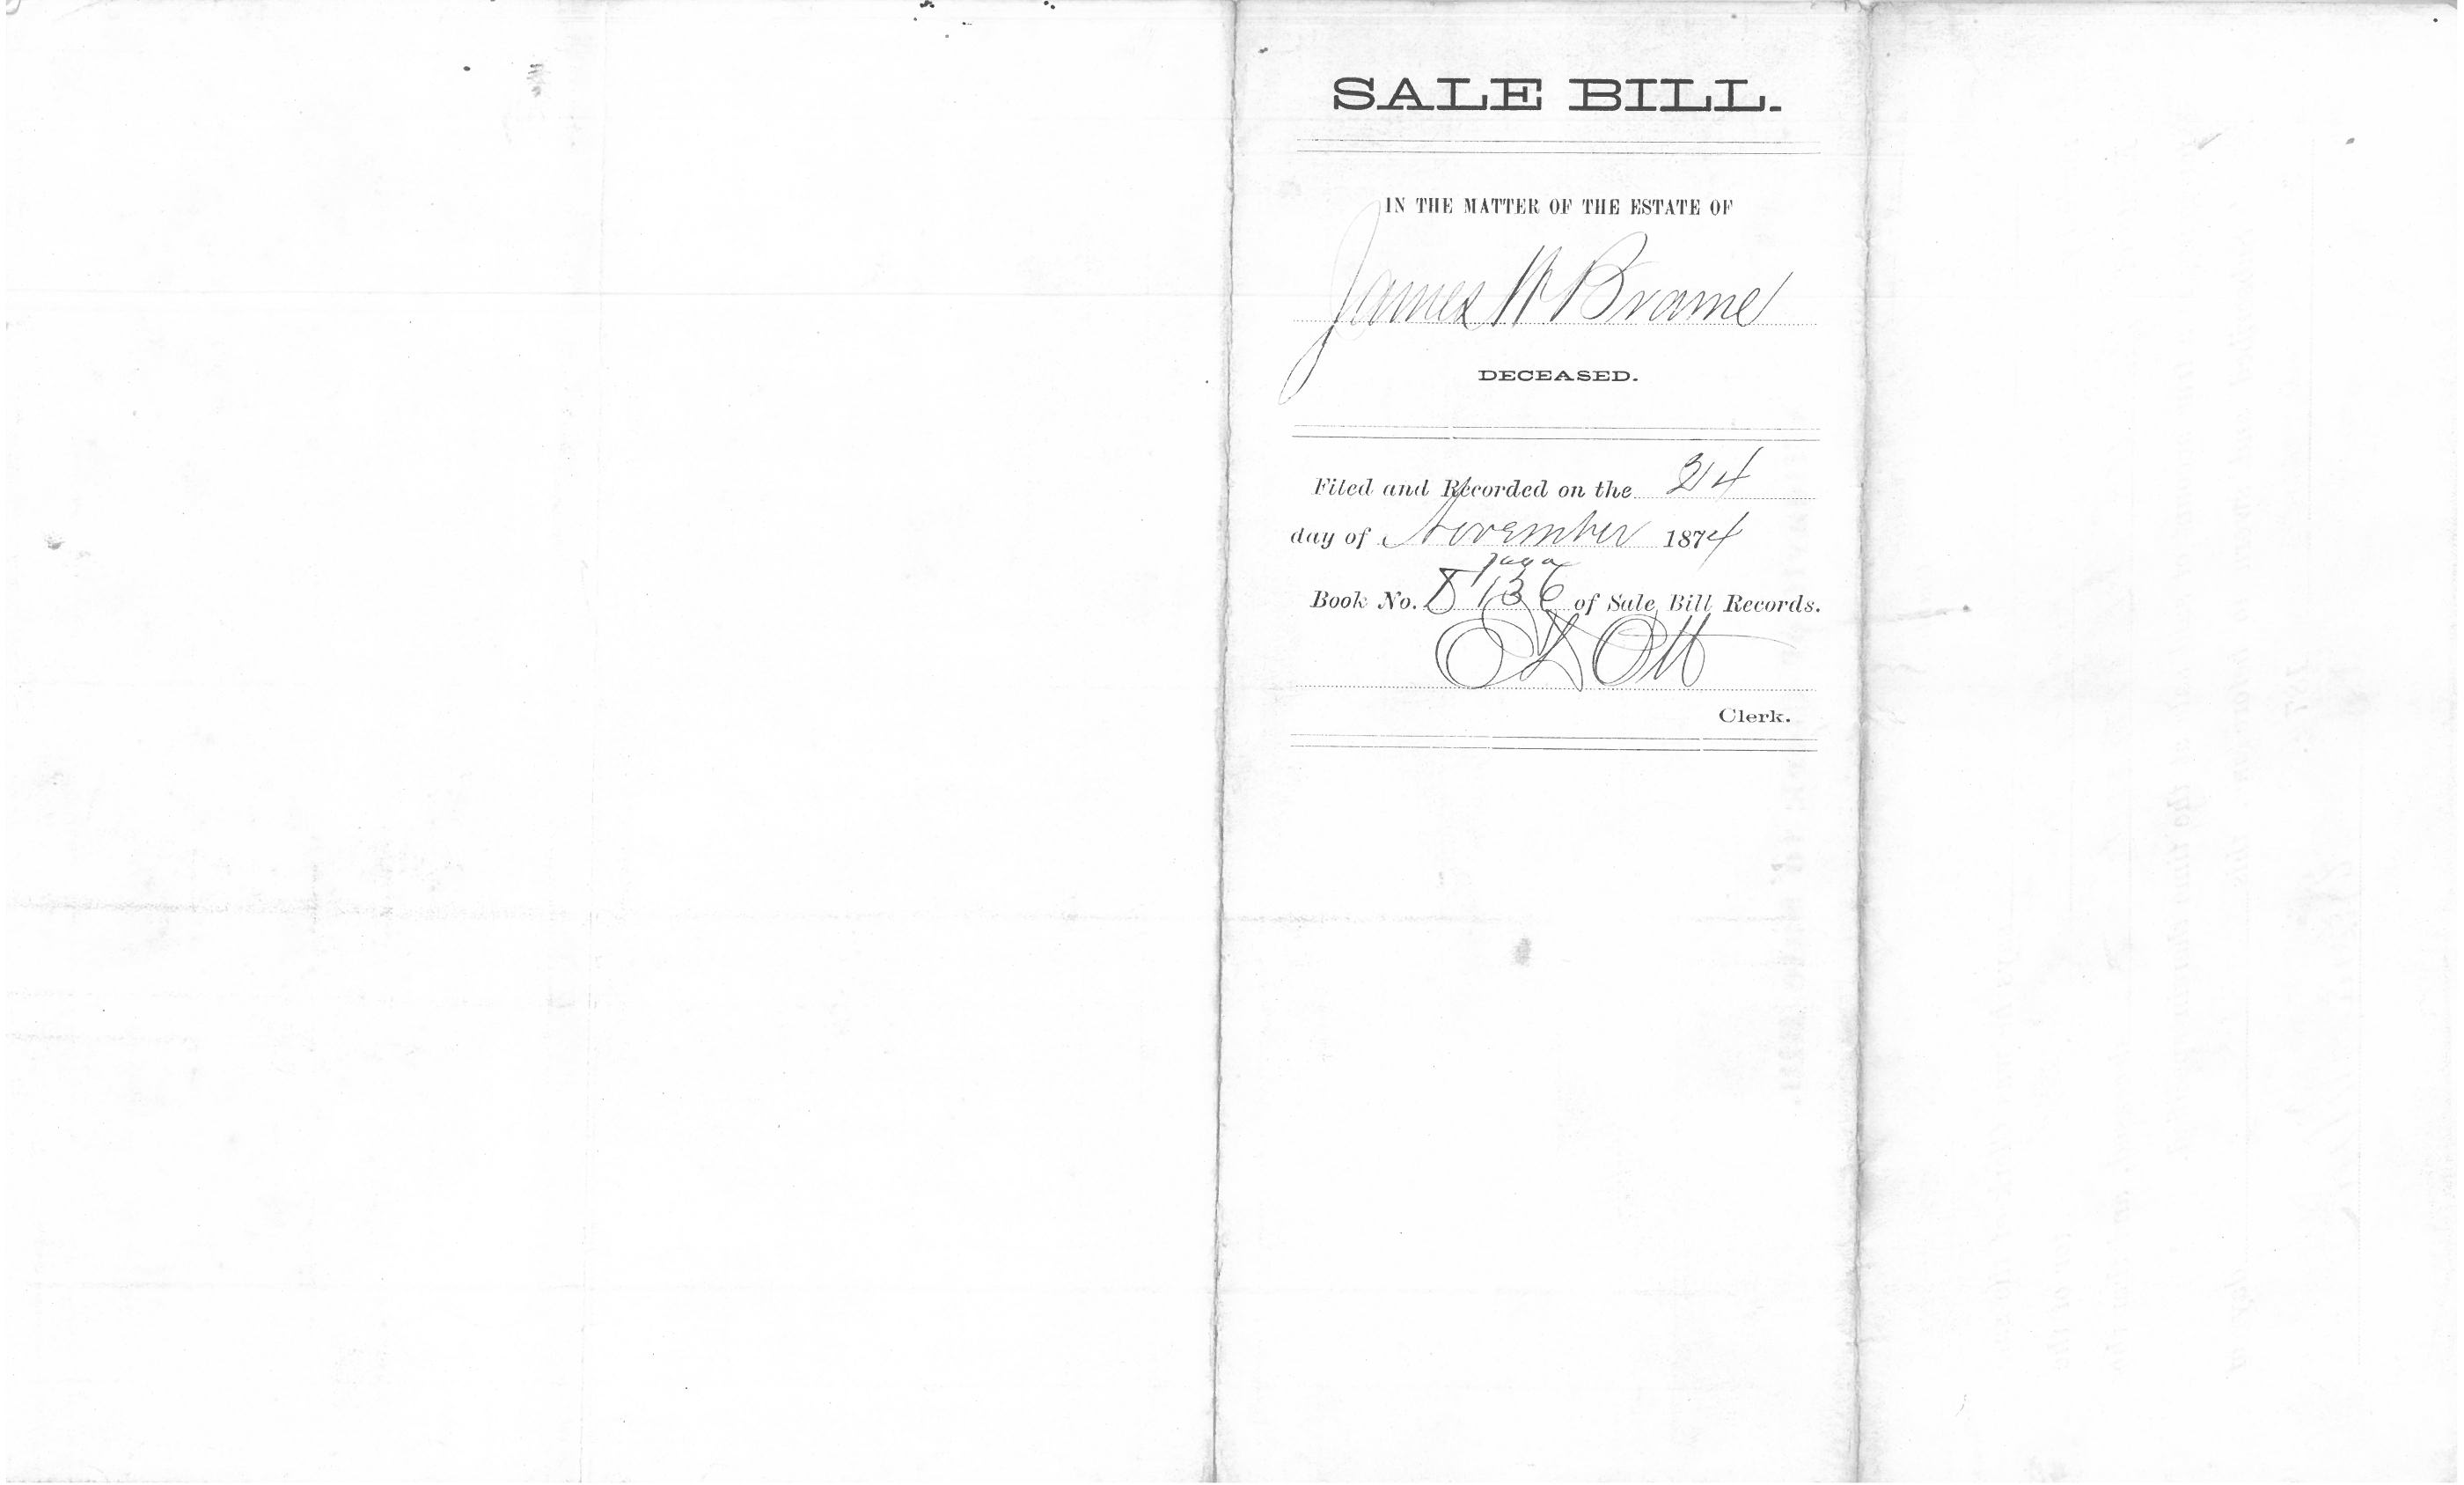 SALE BILL.
IN THE MATTER OF THE ESTATE OF
James W Brame
DECEASED.
Filed and Recorded on the 24
day of November 1874
page
Book No. 136 of Sale Bill Records.
Ott
Clerk.